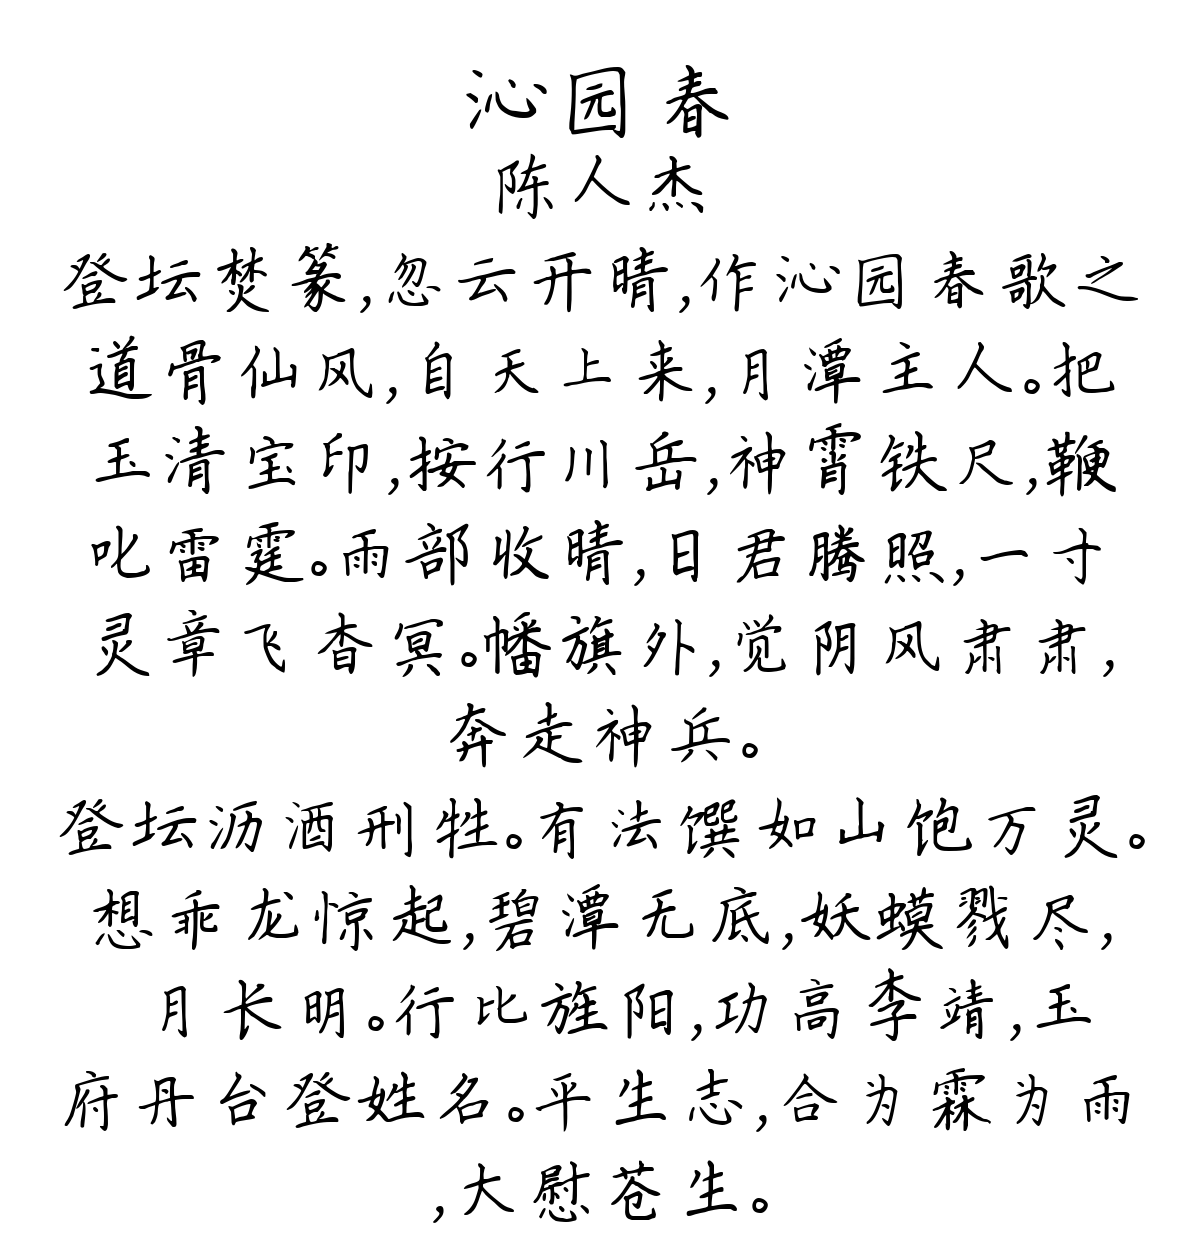 沁园春
陈人杰
登坛焚篆,忽云开晴,作沁园春歌之
道骨仙风,自天上来,月潭主人。把
玉清宝印,按行川岳,神霄铁尺,鞭
叱雷霆。雨部收晴,日君腾照,一寸
灵章飞杳冥。幡旗外,觉阴风肃肃,
奔走神兵。
登坛沥酒刑牲。有法馔如山饱万灵。
想乖龙惊起,碧潭无底,妖蟆戮尽,
月长明。行比旌阳,功高李靖,玉
府丹台登姓名。平生志,合为霖为雨
,大慰苍生。